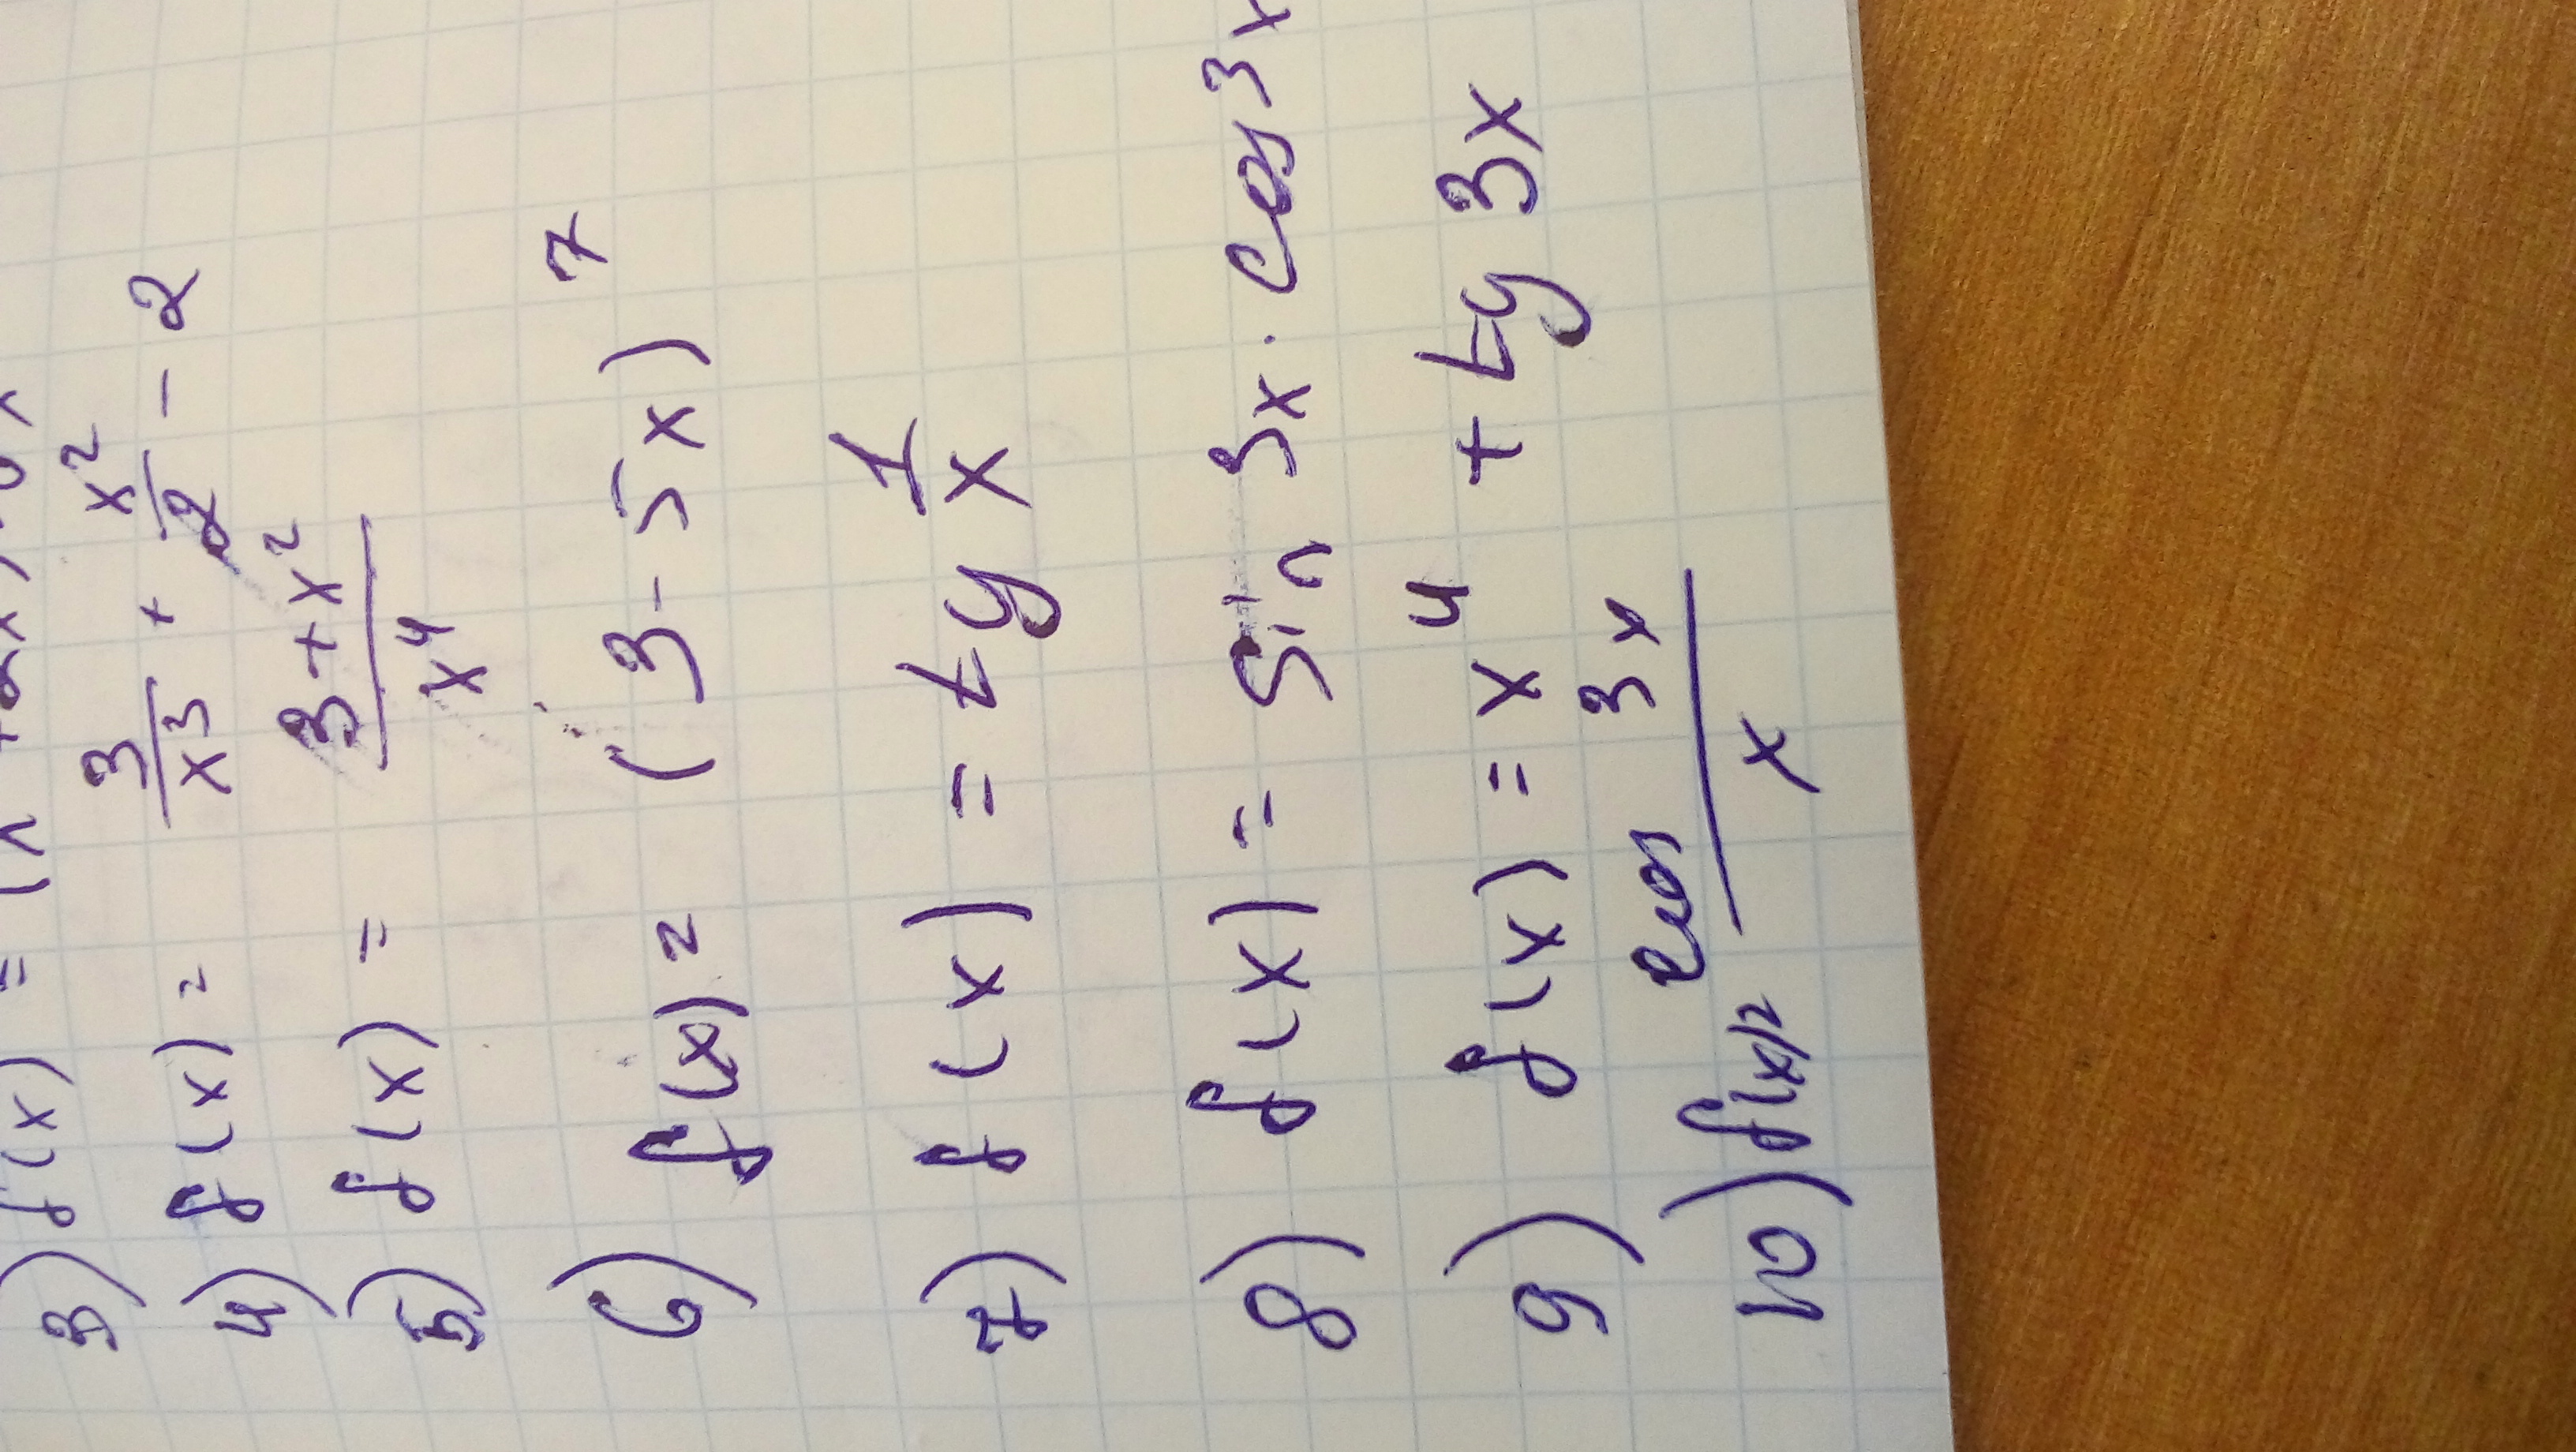 3) f(x) =
4) f(x) = 3/x³ + x²/2 - 2
5) f(x) = (3 + x²)/x⁴
6) f(x) = (3 - 5x)⁷
7) f(x) = tg 1/x
8) f(x) = sin 3x · cos 3x
9) f(x) = x⁴ + tg 3x
10) f(x) = cos 3x / x